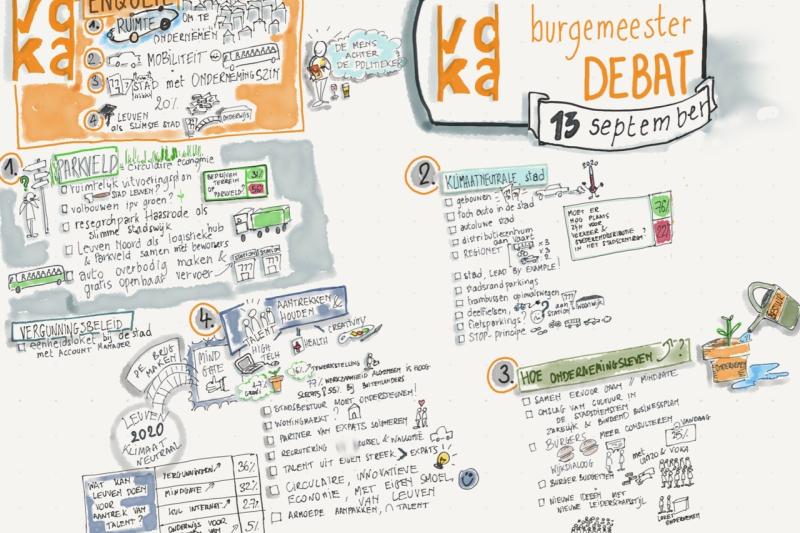 voka
ENQUETE
1. RUIMTE OM TE
ONDERNEMEN
2 MOBILITEIT
3 STAD met ONDERNEMINGSZIN
20%
4 LEUVEN
als SLIMSTE STAD
ONDERWIJS
DE MENS
ACHTER
DE POLITIEKER
voka
burgemeester
DEBAT
13 september
1.
PARKVELD = circulaire economie
ruimtelijk uitvoeringsplan
STAD LEUVEN?
volbouwen ipv groen?
researchpark Haasrode als
slimme stadswijk
Leuven Noord als logistiekhub
& Parkveld samen met bewoners
auto overbodig maken &
gratis openbaar vervoer
BEDRIJVEN
TERREIN
OP
PARKVELD
STATION
VERGUNNINGSBELEID
eenheidsloket bij de stad
met ACCOUNT MANAGER
2.
KLIMAATNEUTRALE stad
2020
gebouwen
toch auto in de stad
autoluwe stad
distributiecentrum
aan vaart
REGIONET
x 3
x 2
stad, LEAD BY EXAMPLE!
stadsrandparkings
trambussen op ringwegen
deelfietsen
fietsparkings?
STATION
STOP-principe
MOET ER
NOG PLAATS
ZIJN VOOR
VERKEER &
GOEDERENDISTRIBUTIE
IN HET STADSCENTRUM?
76%
22%
3.
HOE ONDERNEMINGSLEVEN ?
BESTUUR
ONDERNEMEN
SAMEN ERVOOR GAAN // MINDGATE
OMSLAG VAN CULTUUR IN
DE STADSDIENSTEN
ZAKELIJK & BINDEND BUSINESSPLAN
BURGERS MEER CONSULTEREN
VANDAAG
25%
WIJKDIALOOG
met UNIZO & VOKA
BURGER BUDGETTEN
NIEUWE IDEEËN MET
NIEUWE LEIDERSCHAPSTIJL
LOKET
ONDERNEMEN
4.
TALENT
AANTREKKEN
HOUDEN
MIND
GATE
HIGH
TECH
HEALTH
CREATIVITY
DE BRUG
MAKEN
LEUVEN
2020
KLIMAAT
NEUTRAAL
TEWERKSTELLING
77% WERKZAAMHEID ALGEMEEN IS HOOG
SLECHTS 56% BIJ BUITENLANDERS
STADSBESTUUR MOET ONDERSTEUNEN!
WONINGMARKT?
PARTNER VAN EXPATS SOLLICITEREN
RECRUTERING
BRUSSEL & WALLONIË
TALENT UIT EIGEN STREEK > EXPATS
CIRCULAIRE, INNOVATIEVE
ECONOMIE, MET EIGEN SMOEL
VAN LEUVEN
ARMOEDE AANPAKKEN, TALENT
WAT KAN
LEUVEN DOEN
VOOR
AANTREK VAN
TALENT?
VERGUNNINGEN 36%
MINDGATE 32%
KUL INTERNET 27%
ONDERWIJS VOOR 5%